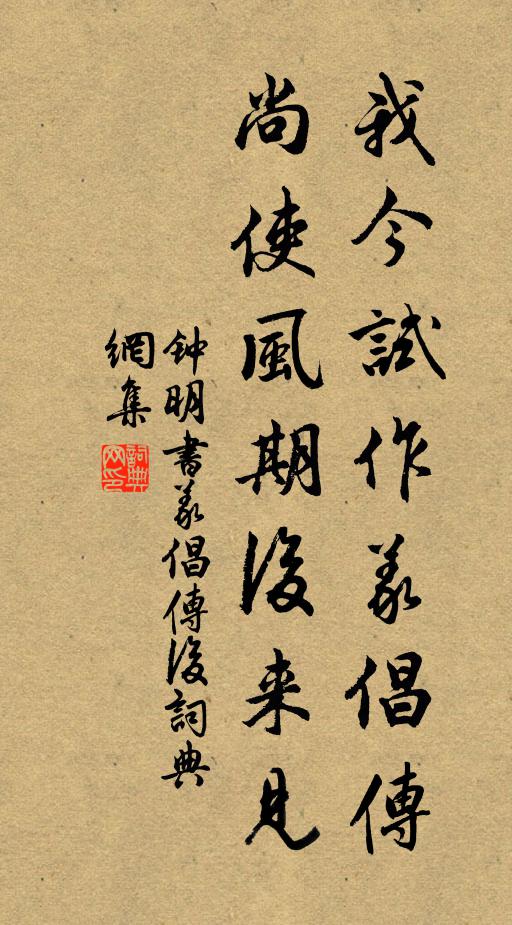 我今試作義倡傳
尚使風期後来見
钟明書義倡傳後詞典
網集
詞典
网印